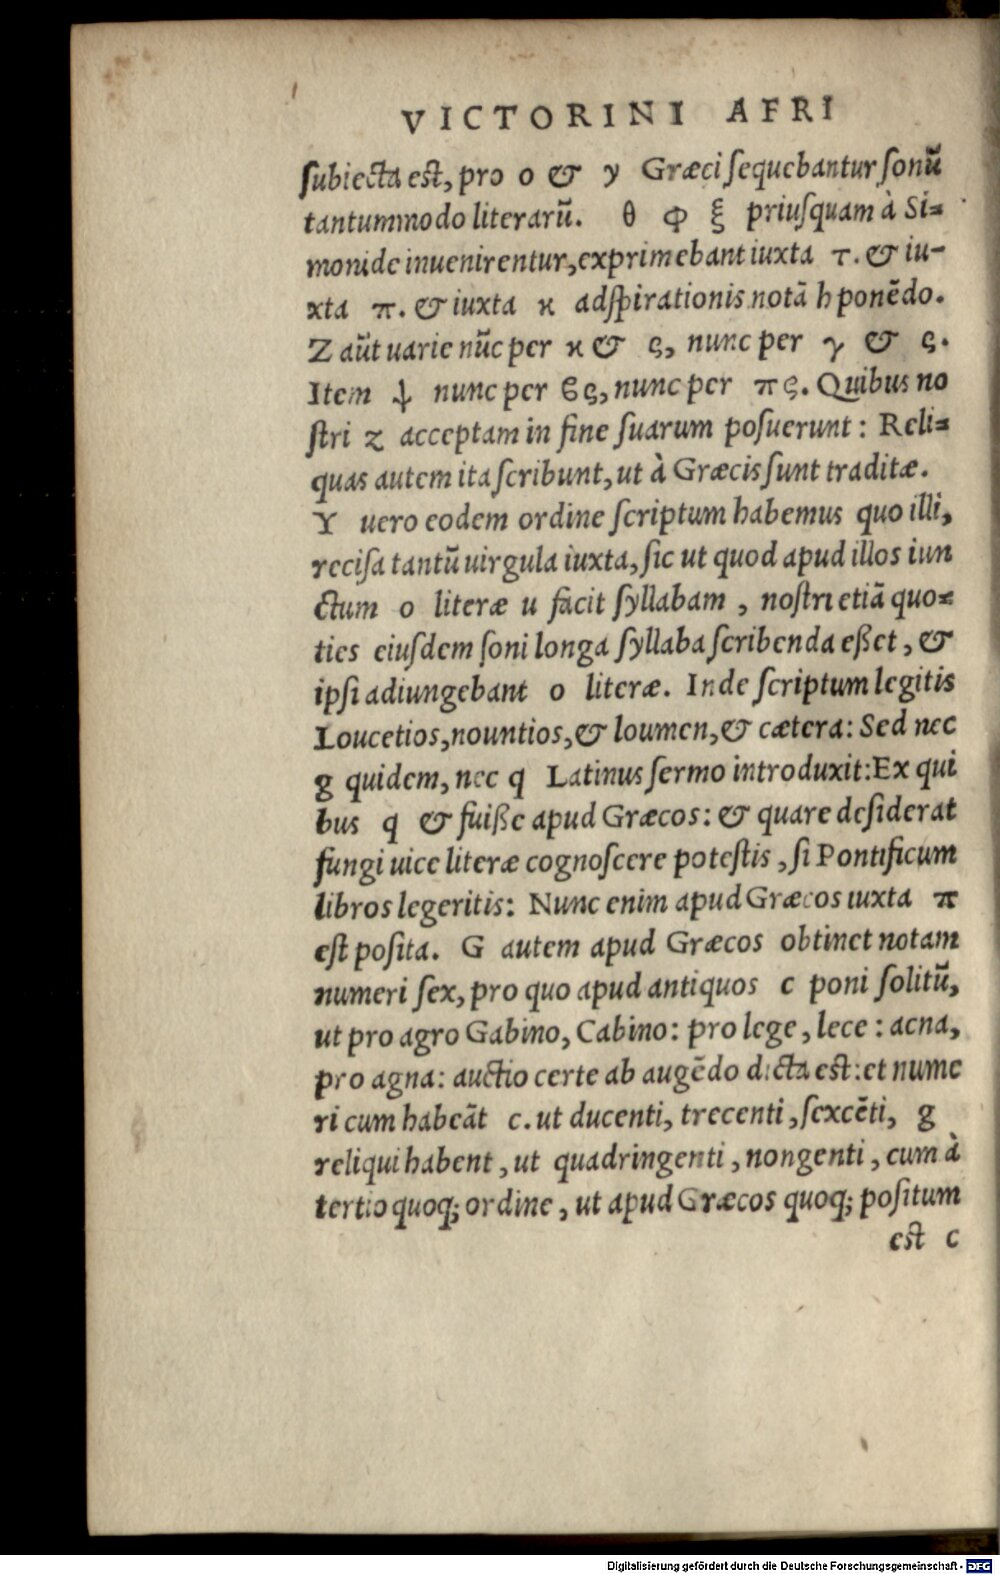 VICTORINI AFRI
ſubiecta est, pro o & y Græci ſequebantur ſonū
tantummodo literarū. θ φ ξ priuſquam à Si=
monide inuenirentur, exprimebant iuxta τ. & iu-
xta π. & iuxta κ adſpirationis notā h ponēdo.
Z aūt uarie nūc per κ & ς, nunc per γ & ς.
Item ψ nunc per βς, nunc per πς. Quibus no
ſtri z acceptam in fine ſuarum poſuerunt: Reli=
quas autem ita ſcribunt, ut à Græcis ſunt traditæ.
Y uero eodem ordine ſcriptum habemus quo illi,
reciſa tantū uirgula iuxta, ſic ut quod apud illos iun
ctum o literæ u facit ſyllabam, noſtri etiā quo=
ties eiuſdem ſoni longa ſyllaba ſcribenda eßet, &
ipſi adiungebant o literæ. Inde ſcriptum legitis
Loucetios, nountios, & loumen, & cætera: Sed nec
g quidem, nec q Latinus ſermo introduxit: Ex qui
bus q & fuiße apud Græcos: & quare deſiderat
fungi uice literæ cognoſcere poteſtis, ſi Pontificum
libros legeritis: Nunc enim apud Græcos iuxta π
eſt poſita. G autem apud Græcos obtinet notam
numeri ſex, pro quo apud antiquos c poni ſolitū,
ut pro agro Gabino, Cabino: pro lege, lece: acna,
pro agna: auctio certe ab augēdo dicta eſt: et nume
ri cum habeāt c. ut ducenti, trecenti, ſexcēti, g
reliqui habent, ut quadringenti, nongenti, cum à
tertio quoq; ordine, ut apud Græcos quoq; poſitum
eſt c
Digitalisierung gefördert durch die Deutsche Forschungsgemeinschaft - DFG